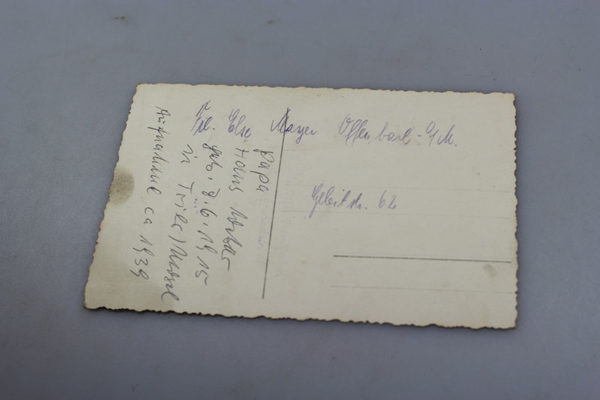 Frl. Else Mayer Offenbach-a/M.
Geleitstr. 62
Papa
Hans
geb. 8.6.1915
in Trier/Mosel
Aufnahme ca 1939